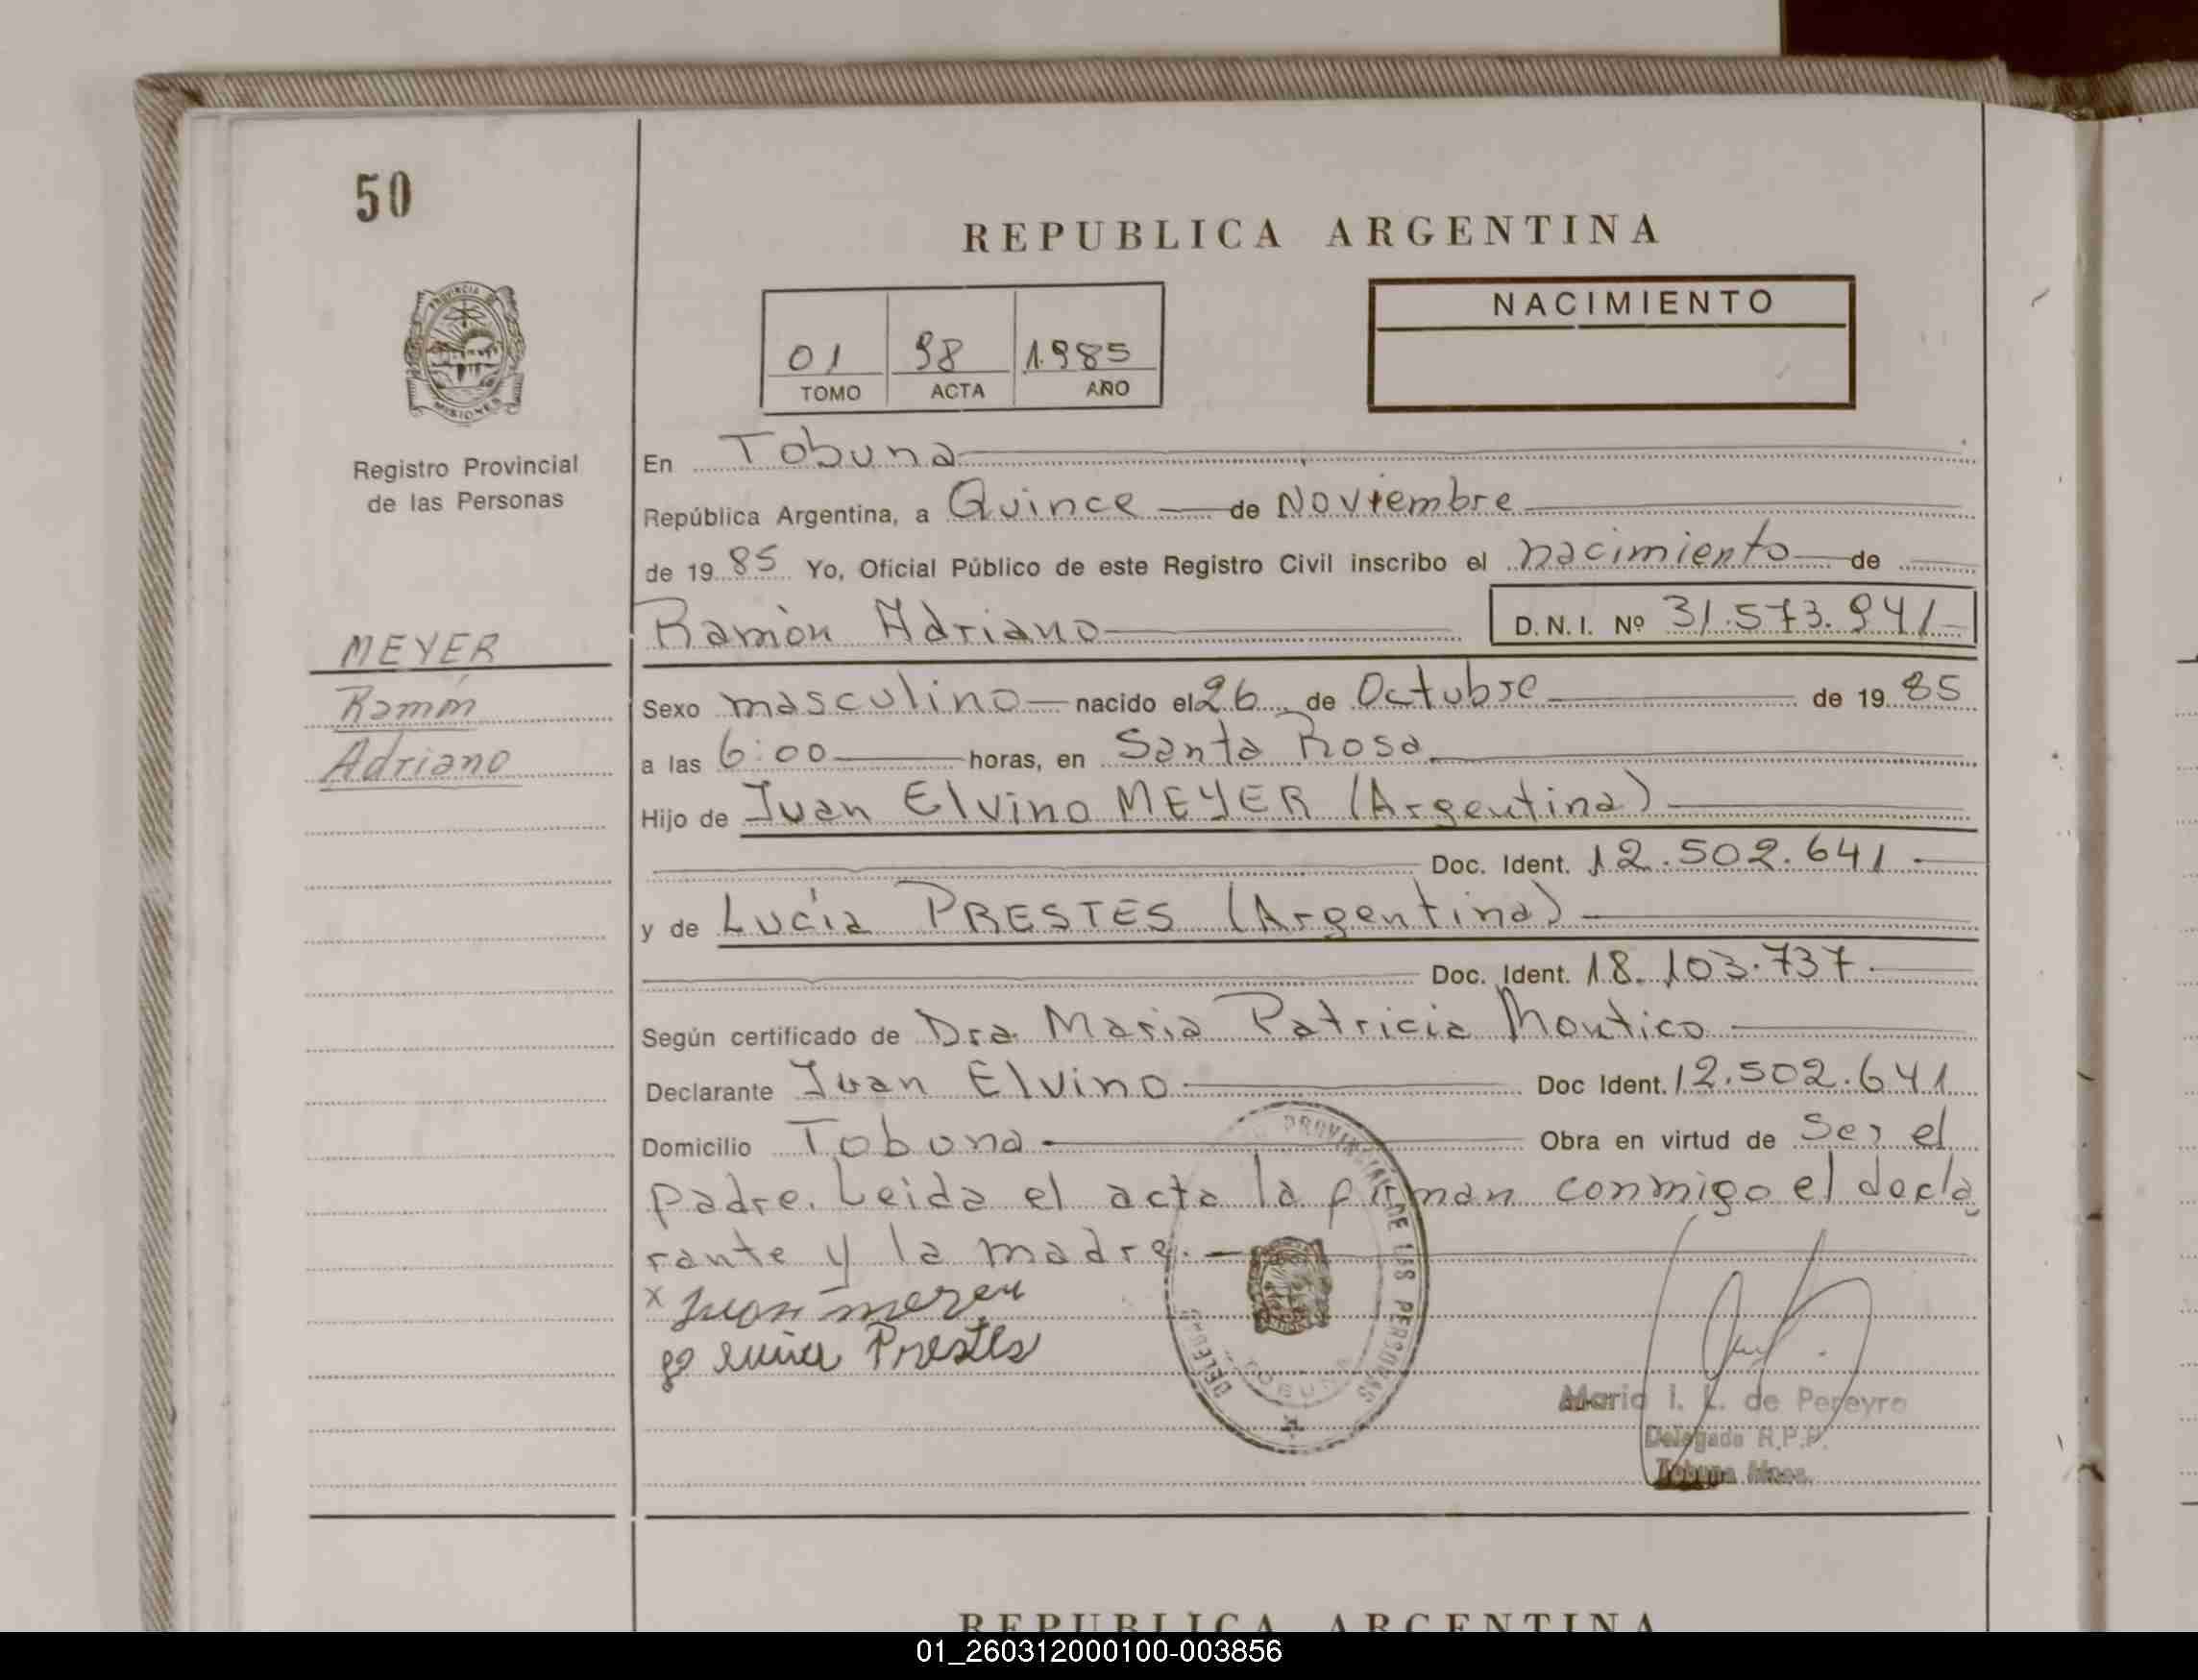 50
REPUBLICA ARGENTINA
PROVINCIA DE
MISIONES
01 98 1.985
TOMO ACTA AÑO
NACIMIENTO
Registro Provincial
de las Personas
MEYER
Ramón
Adriano
En Tobuna
República Argentina, a Quince de Noviembre
de 19 85 Yo, Oficial Público de este Registro Civil inscribo el nacimiento de
Ramón Adriano D.N.I. Nº 31.573.941
Sexo masculino nacido el 26 de Octubre de 19 85
a las 6:00 horas, en Santa Rosa
Hijo de Juan Elvino MEYER (Argentina)
Doc. Ident. 12.502.641
y de Lucía PRESTES (Argentina)
Doc. Ident. 18.103.737
Según certificado de Dra. Maria Patricia Montico
Declarante Juan Elvino Doc Ident. 12.502.641
Domicilio Tobuna Obra en virtud de Ser el
padre. Leida el acta la firman conmigo el decla
rante y la madre.
x Juan meyer
Prestes
PROVINCIAL DE LAS PERSONAS
TOBUNA
Maria I. L. de Pereyra
Delegada R.P.P.
Tobuna Mnes.
REPUBLICA ARGENTINA
01_260312000100-003856